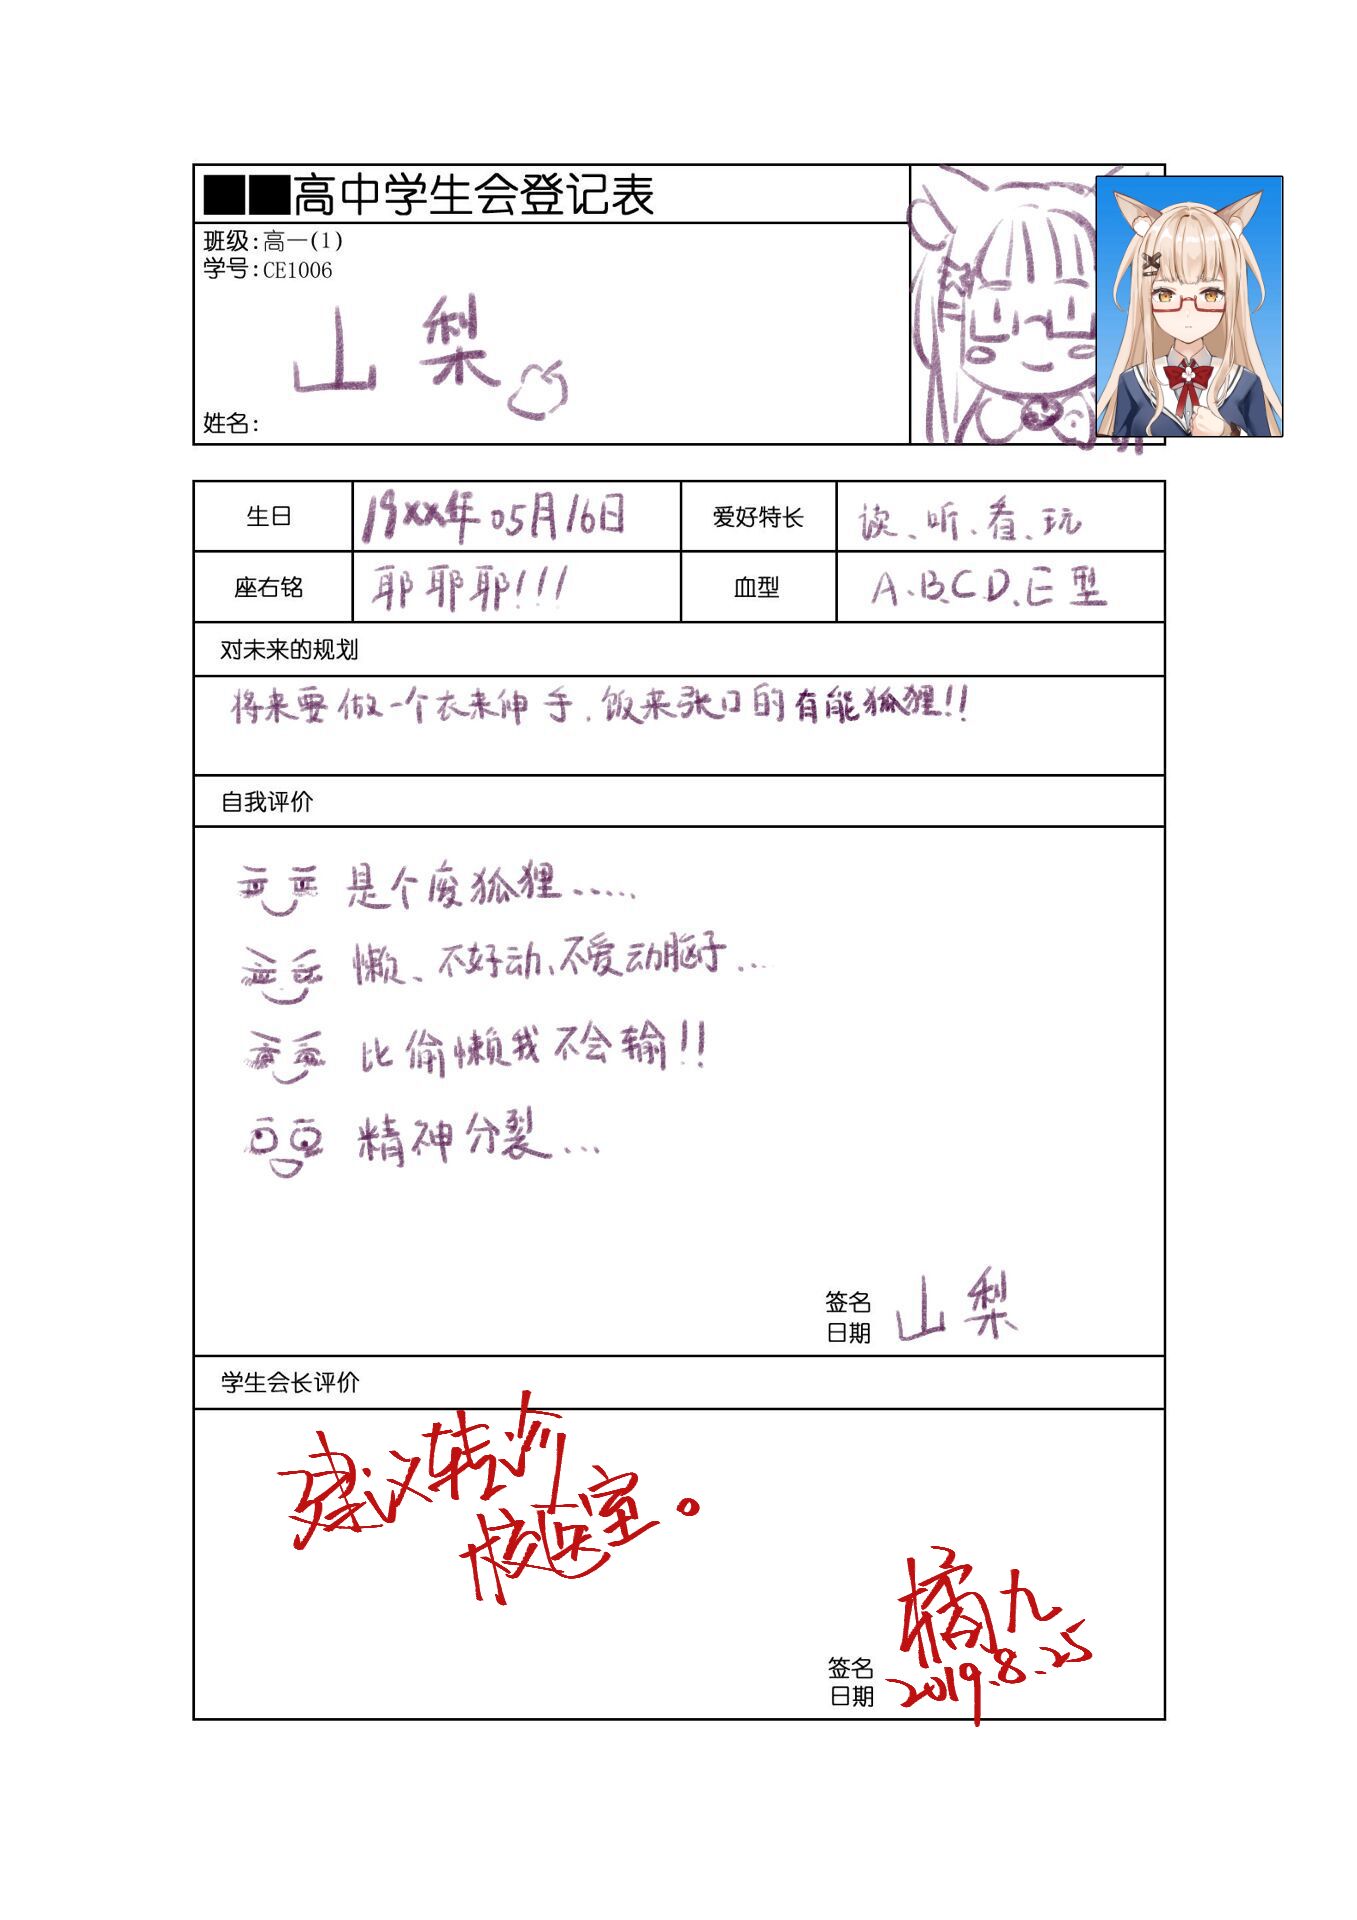 ■■高中学生会登记表
班级:高一(1)
学号:CE1006
姓名: 山梨
生日 19xx年05月16日 爱好特长 读、听、看、玩
座右铭 耶耶耶!!! 血型 A.B.C.D.E型
对未来的规划
将来要做一个衣来伸手.饭来张口的有能狐狸!!
自我评价
是个废狐狸......
懒、不好动、不爱动脑子...
比偷懒我不会输!!
精神分裂...
签名 山梨
日期
学生会长评价
建议转诊
校医室。
签名 橘九
日期 2019.8.25